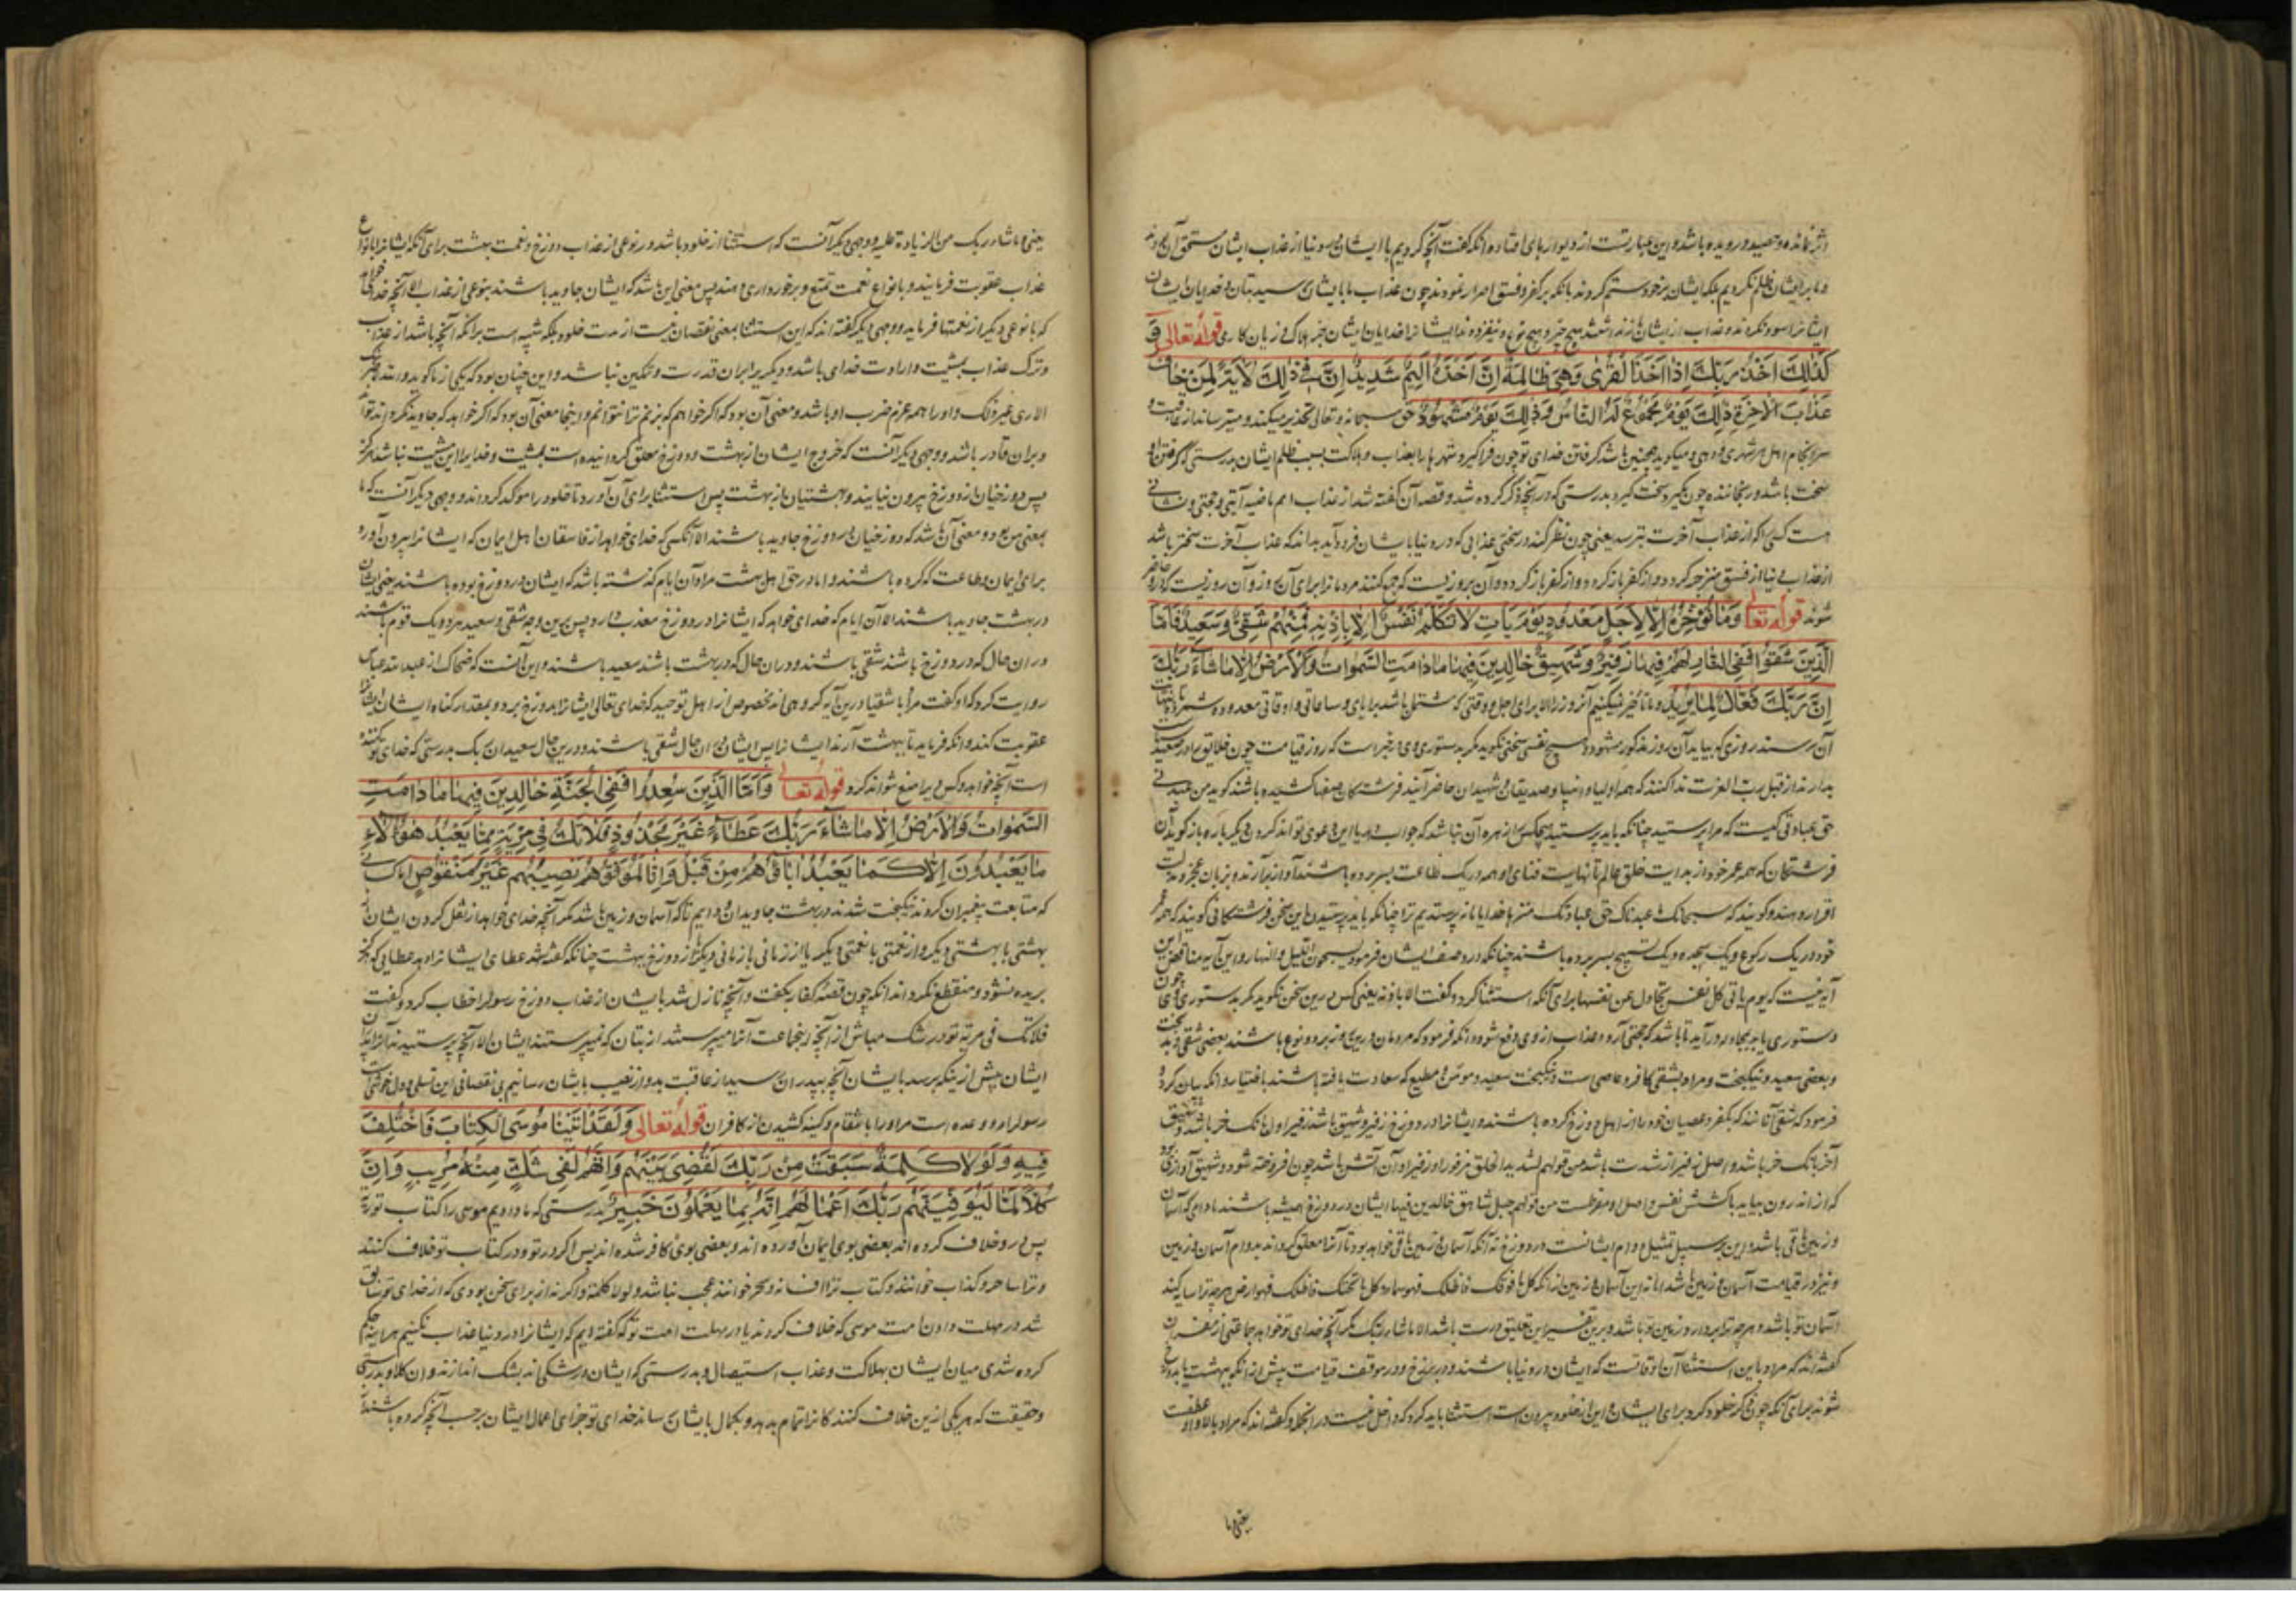 اثر نمانده و حصید درویده باشد و این عبارتست از دیوارهای افتاده آنکه گفت آنچه کردیم با ایشان در دنیا از عذاب ایشان مستحق آن بودند
و ما بر ایشان ظلم نکردیم بلکه ایشان بر خود ستم کردند بانکه بر کفر و فسق اصرار نمودند چون عذاب ما بایشان رسید بتان و خدایان ایشان
ایشانرا سود نکردند و عذاب از ایشان باز نداشتند هیچ چیز و هیچ نوع و نیفزودند ایشانرا خدایان ایشان جز هلاک و زیان کاری قوله تعالی وَ
كَذٰلِكَ اَخْذُ رَبِّكَ اِذَا اَخَذَ الْقُرٰى وَهِيَ ظَالِمَةٌ اِنَّ اَخْذَهُ اَلِيمٌ شَدِيدٌ اِنَّ فِي ذٰلِكَ لَاٰيَةً لِمَنْ خَافَ
عَذَابَ الْاٰخِرَةِ ذٰلِكَ يَوْمٌ مَجْمُوعٌ لَهُ النَّاسُ وَذٰلِكَ يَوْمٌ مَشْهُودٌ حق سبحانه و تعالی تحذیر میکند و میترساند از عاقبت و
سرانجام اهل هر شهری و دهی و میگوید همچنین باشد گرفتن خدای تو چون فرا گیرد شهرها را بعذاب و هلاکت بسبب ظلم ایشان بدرستی که گرفتن او
سخت باشد و رنجاننده چون بگیرد سخت گیرد بدرستی که در آنچه ذکر کرده شد و قصه آن گفته شد از عذاب امم ماضیه آیتی و حجتی و نشانی
هست کسی را که از عذاب آخرت بترسد یعنی چون نظر کند در سختی عذابی که در دنیا بایشان فرود آید بداند که عذاب آخرت سختتر باشد
از عذاب دنیا از فسق منزجر گردد و از کفر باز گردد و آن روزیست که جمع کنند مردمانرا برای آن روز و آن روزیست که درو حاضر
شوند قوله تعا وَمَا نُؤَخِّرُهُ اِلَّا لِاَجَلٍ مَعْدُودٍ يَوْمَ يَاْتِ لَا تَكَلَّمُ نَفْسٌ اِلَّا بِاِذْنِهِ فَمِنْهُمْ شَقِيٌّ وَسَعِيدٌ فَاَمَّا
الَّذِينَ شَقُوا فَفِي النَّارِ لَهُمْ فِيهَا زَفِيرٌ وَشَهِيقٌ خَالِدِينَ فِيهَا مَا دَامَتِ السَّمٰوَاتُ وَالْاَرْضُ اِلَّا مَا شَاءَ رَبُّكَ
اِنَّ رَبَّكَ فَعَّالٌ لِمَا يُرِيدُ و ما تأخیر نمیکنیم آنروز را الا برای اجل و وقتی که مشتمل باشد بر ایامی و ساعاتی و اوقاتی معدوده شمرده تا بنهایت
آن رسند روزی که بیاید آن روز مذکور مشهود هیچ نفسی سخنی نگوید مگر بدستوری وی در خبر است که روز قیامت چون خلایق را در صعید
بدارند از قبل رب العزت ندا کنند که همه اولیا و انبیا و صدیقان و شهیدان حاضر آیند فرشتگان صفها کشیده باشند گوید من عبدنی
حق عبادتی کیست که مرا پرستید چنانکه باید پرستید هیچکس را زهره آن نباشد که جواب دهد یا این دعوی تواند کردن دیگر باره باز گوید آن
فرشتگان که همه عمر خود از بدایت خلق عالم تا نهایت فنای او همه در یک طاعت بسر برده باشند آواز برآرند و بزبان عجز و مذلت
اقرار دهند و گویند که سبحانک ما عبدناک حق عبادتک منزها خدایا ما نپرستدیم ترا چنانکه باید پرستیدن این سخن فرشتگانی گویند که همه عمر
خود در یک رکوع و یک سجده و یک تسبیح بسر برده باشند چنانکه در وصف ایشان فرمود یسبحون اللیل والنهار و این آیه مناقض این
آیه نیست که یوم یأتی کل نفس تجادل عن نفسها برای آنکه استثنا کرد و گفت الا باذنه یعنی کس درین سخن نگوید مگر بدستوری وی چون
دستوری یابد بمجادله درآید تا باشد که حجتی آرد و عذاب از وی دفع شود و آنکه فرمود که مردمان درین روز بر دو نوع باشند بعضی شقی و بدبخت
و بعضی سعید و نیکبخت و مراد بشقی کافر و عاصی است و نیکبخت سعید و مؤمن و مطیع که سعادت یافته باشند باختیار و آنکه بیان کرد و
فرمود که شقی آنانند که بکفر و عصیان خود را از اهل دوزخ کرده باشند و ایشانرا در دوزخ زفیر و شهیق باشد زفیر اول بانک خر باشد و شهیق
آخر بانک خر باشد و اصل زفیر از شدت باشد
که از اندرون بیاید باکشش نفس و اصل او من قولهم جبل شاهق خالدین فیها ایشان در دوزخ همیشه باشند مادام که آسمان
و زمین باقی باشد و این بر سبیل تمثیل دوام ایشانست در دوزخ نه آنکه آسمان و زمین باقی خواهد بود تا آنرا معلق گرداند بدوام آسمان و زمین
و نیز در قیامت آسمان و زمین باشد اما نه این آسمان و زمین از آنکه کل ما فوقک فاظلک فهو سماء و کل ما تحتک فاقلک فهو ارض هرچه ترا سایه کند
آسمان تو باشد و هرچه ترا بردارد زمین تو باشد و برین تفسیر این تعلیق درست باشد الا ما شاء ربک مگر آنچه خدای تو خواهد جماعتی از مفسران
گفته‌اند که مراد باین استثنا آن اوقاتست که ایشان در دنیا باشند و در برزخ و در موقف قیامت پیش از آنکه ببهشت یا بدوزخ
شوند برای آنکه چون ذکر خلود کرد برای ایشان و این از خلود بیرون است استثنا باید کرد که داخل نیست در آن جمله و گفته‌اند که مراد بالا واو عطفست
یعنی ما
یعنی و ما شاء ربک من الزیادة علیه و وجهی دیگر آنست که استثنا از خلود باشد در نوعی از عذاب دوزخ و نعمت بهشت برای آنکه ایشانرا بانواع
عذاب عقوبت فرمایند و بانواع نعمت تمتع و برخورداری دهند پس معنی این باشد که ایشان جاوید باشند بنوعی از عذاب الا آنچه خدای خواهد
که بانوعی دیگر از نعمتها فرماید و وجهی دیگر گفته‌اند که این استثنا بمعنی نقصان نیست از مدت خلود بلکه تنبیه است بر آنکه آنچه باشد از عذاب
و ترک عذاب بمشیت و ارادت خدای باشد و دیگریرا بران قدرت و تمکین نباشد و این چنان بود که یکی از ما گوید والله لاضربنک
الا اری غیر ذلک و او را همه عزم ضرب او باشد و معنی آن بود که اگر خواهم که نزنم ترا نتوانم و اینجا معنی آن بود که اگر خواهد که جاوید نگرداند تواند
و بران قادر باشد و وجهی دیگر آنست که خروج ایشان از بهشت و دوزخ معلق گردانیده است بمشیت و خدایرا این مشیت نباشد هرگز
پس دوزخیان از دوزخ بیرون نیایند و بهشتیان از بهشت پس استثنا برای آن آورد تا خلود را موکد گرداند و وجهی دیگر آنست که ما
بمعنی من بود و معنی آن باشد که دوزخیان در دوزخ جاوید باشند الا آنکسی که خدای خواهد از فاسقان اهل ایمان که ایشانرا بیرون آورد
برای ایمان و طاعت که کرده باشند و اما در حق اهل بهشت مراد آن ایام گذشته باشد که ایشان در دوزخ بوده باشند یعنی ایشان
در بهشت جاوید باشند الا آن ایام که خدای خواهد که ایشانرا در دوزخ معذب دارد پس برین وجه شقی و سعید هر دو یک قوم باشند
دران حال که در دوزخ باشند شقی باشند و دران حال که در بهشت باشند سعید باشند و این آنست که ضحاک از عبدالله عباس
روایت کرد که او گفت مراد باشقیا درین آیه گروهی‌اند مخصوص از اهل توحید که خدای تعالی ایشانرا بدوزخ برد و بمقدار گناه ایشان ایشانرا
عقوبت کند و آنکه فرماید تا ببهشت آرند ایشانرا پس ایشان در ان حال شقی باشند و درین حال سعید ان ربک بدرستی که خدای تو کننده
است آنچه خواهد و کس ویرا منع نتواند کرد قوله تعا وَاَمَّا الَّذِينَ سُعِدُوا فَفِي الْجَنَّةِ خَالِدِينَ فِيهَا مَا دَامَتِ
السَّمٰوَاتُ وَالْاَرْضُ اِلَّا مَا شَاءَ رَبُّكَ عَطَاءً غَيْرَ مَجْذُوذٍ فَلَا تَكُ فِي مِرْيَةٍ مِمَّا يَعْبُدُ هٰؤُلَاءِ
مَا يَعْبُدُونَ اِلَّا كَمَا يَعْبُدُ اٰبَاؤُهُمْ مِنْ قَبْلُ وَاِنَّا لَمُوَفُّوهُمْ نَصِيبَهُمْ غَيْرَ مَنْقُوصٍ اما کسانی
که متابعت پیغمبران کردند نیکبخت شدند در بهشت جاویدان و دایم تا که آسمان و زمین باشد مگر آنچه خدای خواهد از نقل کردن ایشان از
بهشتی با بهشتی دیگر و از نعمتی با نعمتی دیگر یا از زمانی با زمانی دیگر از دوزخ ببهشت چنانکه گفته شد عطای ایشانرا دهد عطایی که هرگز
بریده نشود و منقطع نگردد آنکه چون قصه کفار بگفت و آنچه نازل شد بایشان از عذاب دوزخ رسولرا خطاب کرد و گفت
فلا تک فی مریة تو در شک مباش از آنچه اینجماعت آنرا میپرستند از بتان که نمیپرستند ایشان الا آنچه پرستیدند آنرا پدران
ایشان پیش از ینکه برسد بایشان آنچه بپدران رسید از عاقبت بد و از نصیب بایشان رسانیم بی نقصانی این تسلی و دل خوشی است
رسولرا و وعده است مراورا بانتقام و کینه کشیدن از کافران قوله تعالی وَلَقَدْ اٰتَيْنَا مُوسَى الْكِتَابَ فَاخْتُلِفَ
فِيهِ وَلَوْلَا كَلِمَةٌ سَبَقَتْ مِنْ رَبِّكَ لَقُضِيَ بَيْنَهُمْ وَاِنَّهُمْ لَفِي شَكٍّ مِنْهُ مُرِيبٍ وَاِنَّ
كُلًّا لَمَّا لَيُوَفِّيَنَّهُمْ رَبُّكَ اَعْمَالَهُمْ اِنَّهُ بِمَا يَعْمَلُونَ خَبِيرٌ بدرستی که ما دادیم موسی را کتاب توریة
پس درو خلاف کرده‌اند بعضی بوی ایمان آورده‌اند و بعضی بوی کافر شده‌اند پس اگر در تو و در کتاب تو خلاف کنند
و ترا ساحر و کذاب خوانند و کتاب ترا افسانه و سحر خوانند عجب نباشد ولولا کلمة و اگر نه از برای سخن بودی که از خدای تو سابق
شد در مهلت دادن امت موسی که خلاف کردند یا در مهلت امت تو که گفته‌ایم که ایشانرا در دنیا عذاب نکنیم هراینه حکم
کرده شدی میان ایشان بهلاکت و عذاب استیصال و بدرستی که ایشان در شکی‌اند بشک اندازنده و ان کلا و بدرستی
و حقیقت که هر یکی ازین خلاف کنندگانرا تمام بدهد و بکمال بایشان رساند خدای تو جزای اعمال ایشان بر حسب آنچه کرده باشند